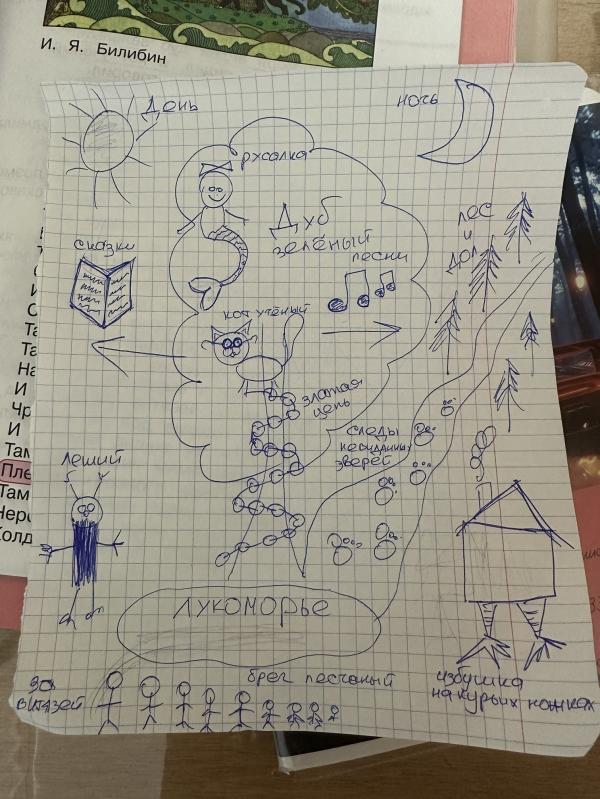 И. Я. Билибин
День
ночь
русалка
Дуб
зелёный
лес
и
дол
сказки
песни
кот учёный
златая
цепь
следы
невиданных
зверей
леший
Там
И
Там
Там
ЛУКОМОРЬЕ
брег песчаный
30
витязей
избушка
на курьих ножках